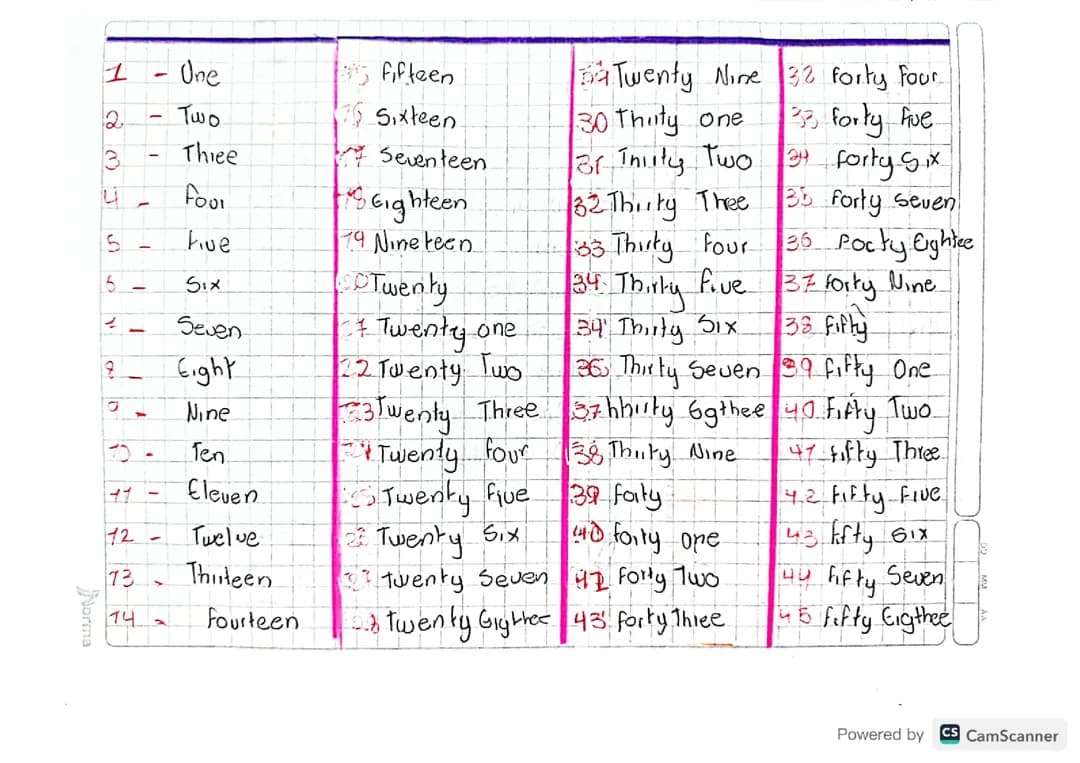 1 - One
2 - Two
3 - Three
4 - Four
5 - Five
6 - Six
- Seven
8 - Eight
9 - Nine
10 - Ten
11 - Eleven
12 - Twelve
13 - Thirteen
14 - Fourteen
15 Fifteen
16 Sixteen
17 Seventeen
18 Eighteen
19 Nineteen
20 Twenty
21 Twenty one
22 Twenty Two
23 Twenty Three
24 Twenty four
25 Twenty Five
26 Twenty Six
27 twenty Seven
28 Twenty Eigthee
29 Twenty Nine
30 Thirty one
31 Thirty Two
32 Thirty Three
33 Thirty Four
34 Thirty Five
34 Thirty Six
36 Thirty Seven
37 hhirty Egthee
38 Thirty Nine
39 forty
40 forty one
42 Forty Two
43 forty Three
32 forty four
33 forty five
34 forty Six
35 forty Seven
36 Forty Eightee
37 forty Nine
38 Fifty
39 fifty One
40 Fifty Two
41 fifty Three
42 Fifty Five
43 fifty Six
44 fifty Seven
45 fifty Eigthee
Norma
DD MM AA
Powered by CS CamScanner